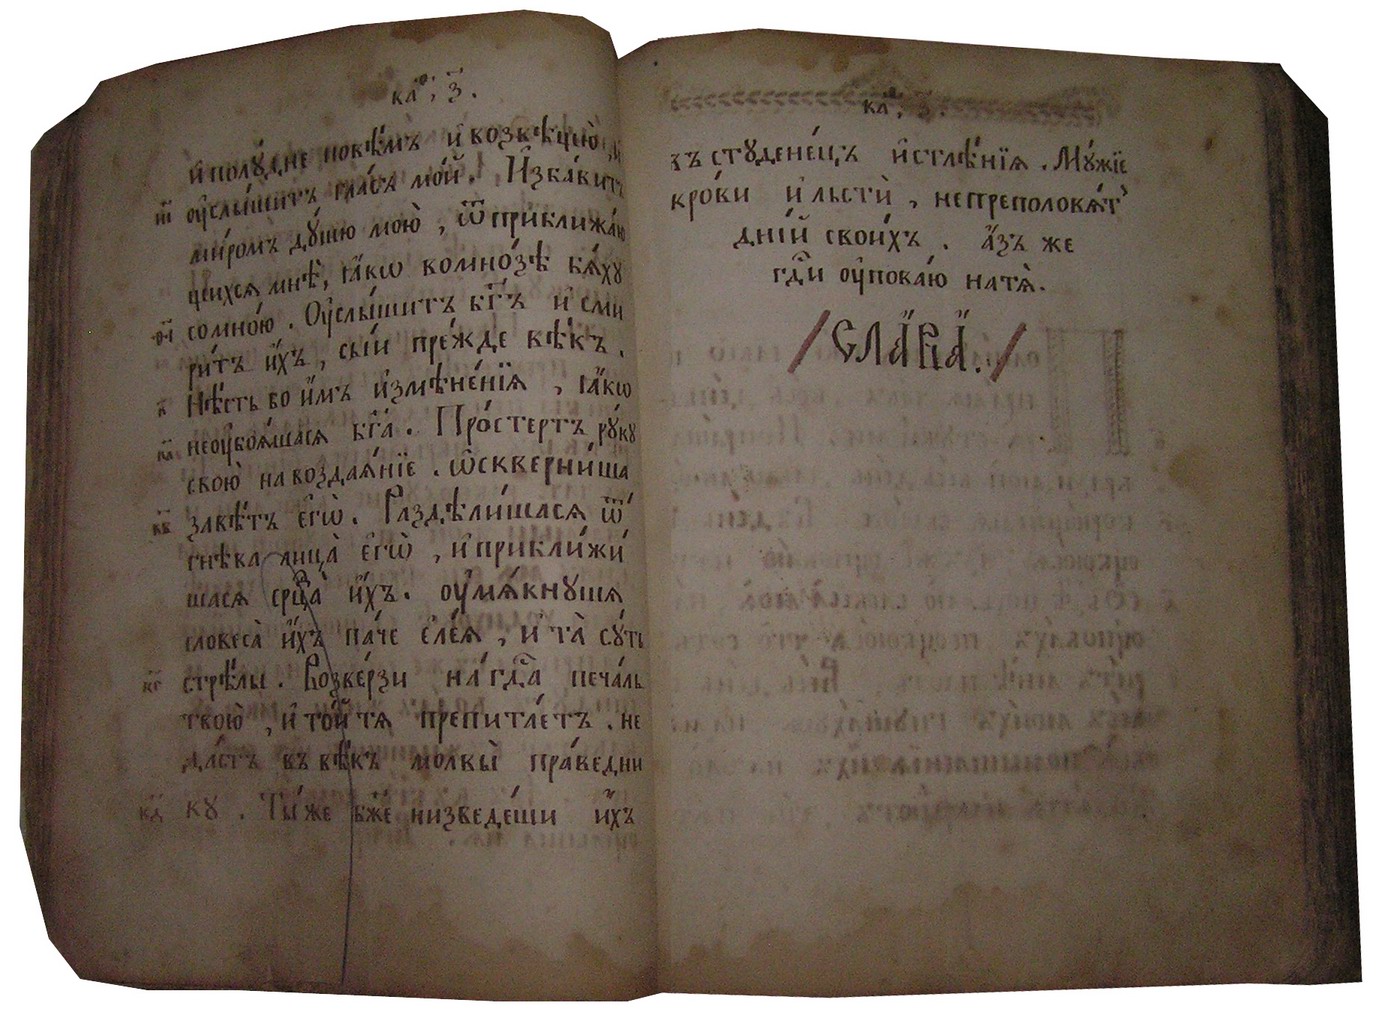 каѳ, з҃.
и҆ полу́дне повѣ́мъ и҆ возвѣщꙋ̀, и҆
и҃і ѹ҆слы́шитъ гла́съ мо́й. И҆зба́витъ
ми́ромъ дꙋ́шꙋ мою̀, ѿ приближа́ю
щихся мнѣ̀, ꙗ҆́кѡ во мно́зѣ бѧ́хꙋ
ѳ҃і со мно́ю. Ѹ҆слы́шитъ бг҃ъ и҆ сми
ри́тъ и҆́хъ, сы́и пре́жде вѣ́къ.
к҃ Нѣ́сть бо и҆́мъ и҆змѣне́нїѧ, ꙗ҆́кѡ
к҃а не ѹ҆боѧ́шасѧ бг҃а. Простертъ рꙋ́кꙋ
свою̀ на воздаѧ́нїе. ѡ҆скверни́ша
к҃в завѣ́тъ є҆гѡ̀. Раздѣли́шасѧ ѿ
гнѣ́ва лица̀ є҆гѡ̀, и҆ прибли́жи
шасѧ срⷣца̀ и҆́хъ. ѹ҆мѧ́кнꙋшѧ
словеса̀ и҆́хъ па́че є҆ле́ѧ, и҆ та̀ сꙋ́ть
к҃г стрѣ́лы. Возве́рзи на́ гдⷭ҇а печа́ль
твою̀, и҆ то́й тѧ препита́етъ. не
да́стъ въ вѣ́къ молвы̀ пра́ведни
к҃д кꙋ. Ты́ же бж҃е низведе́ши и҆́хъ
каѳ, з҃.
въ стꙋдене́цъ и҆стлѣ́нїѧ. Мꙋ́жїе
кро́ви и҆ льстѝ, не преполовѧ́тъ
дні́й свои́хъ. а҆́зъ же
гдⷭ҇и ѹ҆пова́ю на тѧ̀.
/ СЛА́ВА. /